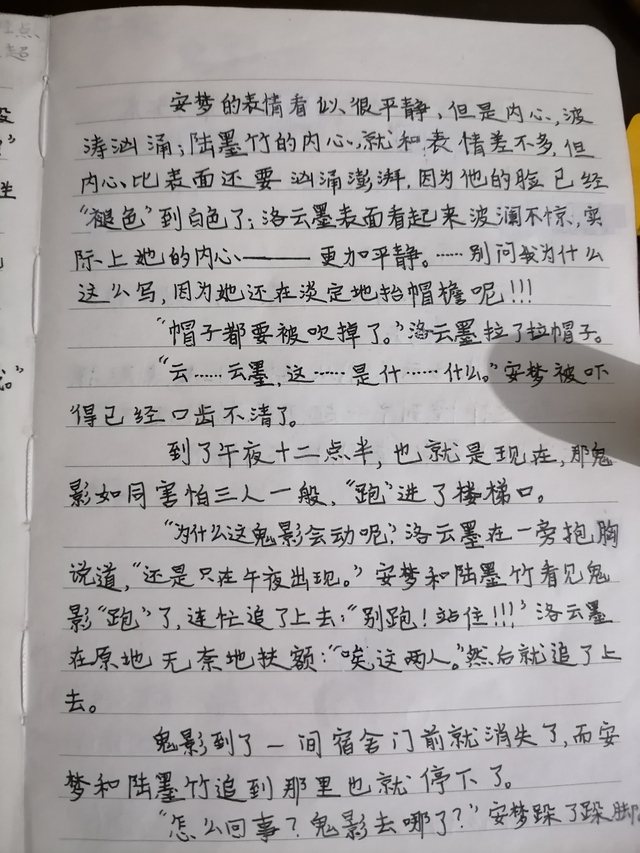 安梦的表情看似很平静，但是内心，波
涛汹涌；陆墨竹的内心，就和表情差不多，但
内心比表面还要汹涌澎湃，因为他的脸已经
“褪色”到白色了；洛云墨表面看起来波澜不惊，实
际上她的内心——更加平静。……别问我为什么
这么写，因为她还在淡定地抬帽檐呢！！！
“帽子都要被吹掉了。”洛云墨拉了拉帽子。
“云……云墨，这……是什……什么。”安梦被吓
得已经口齿不清了。
到了午夜十二点半，也就是现在，那鬼
影如同害怕三人一般，“跑”进了楼梯口。
“为什么这鬼影会动呢？”洛云墨在一旁抱胸
说道，“还是只在午夜出现。”安梦和陆墨竹看见鬼
影“跑”了，连忙追了上去：“别跑！站住！！！”洛云墨
在原地无奈地扶额：“唉这两人。”然后就追了上
去。
鬼影到了一间宿舍门前就消失了，而安
梦和陆墨竹追到那里也就停下了。
“怎么回事？鬼影去哪了？”安梦跺了跺脚。